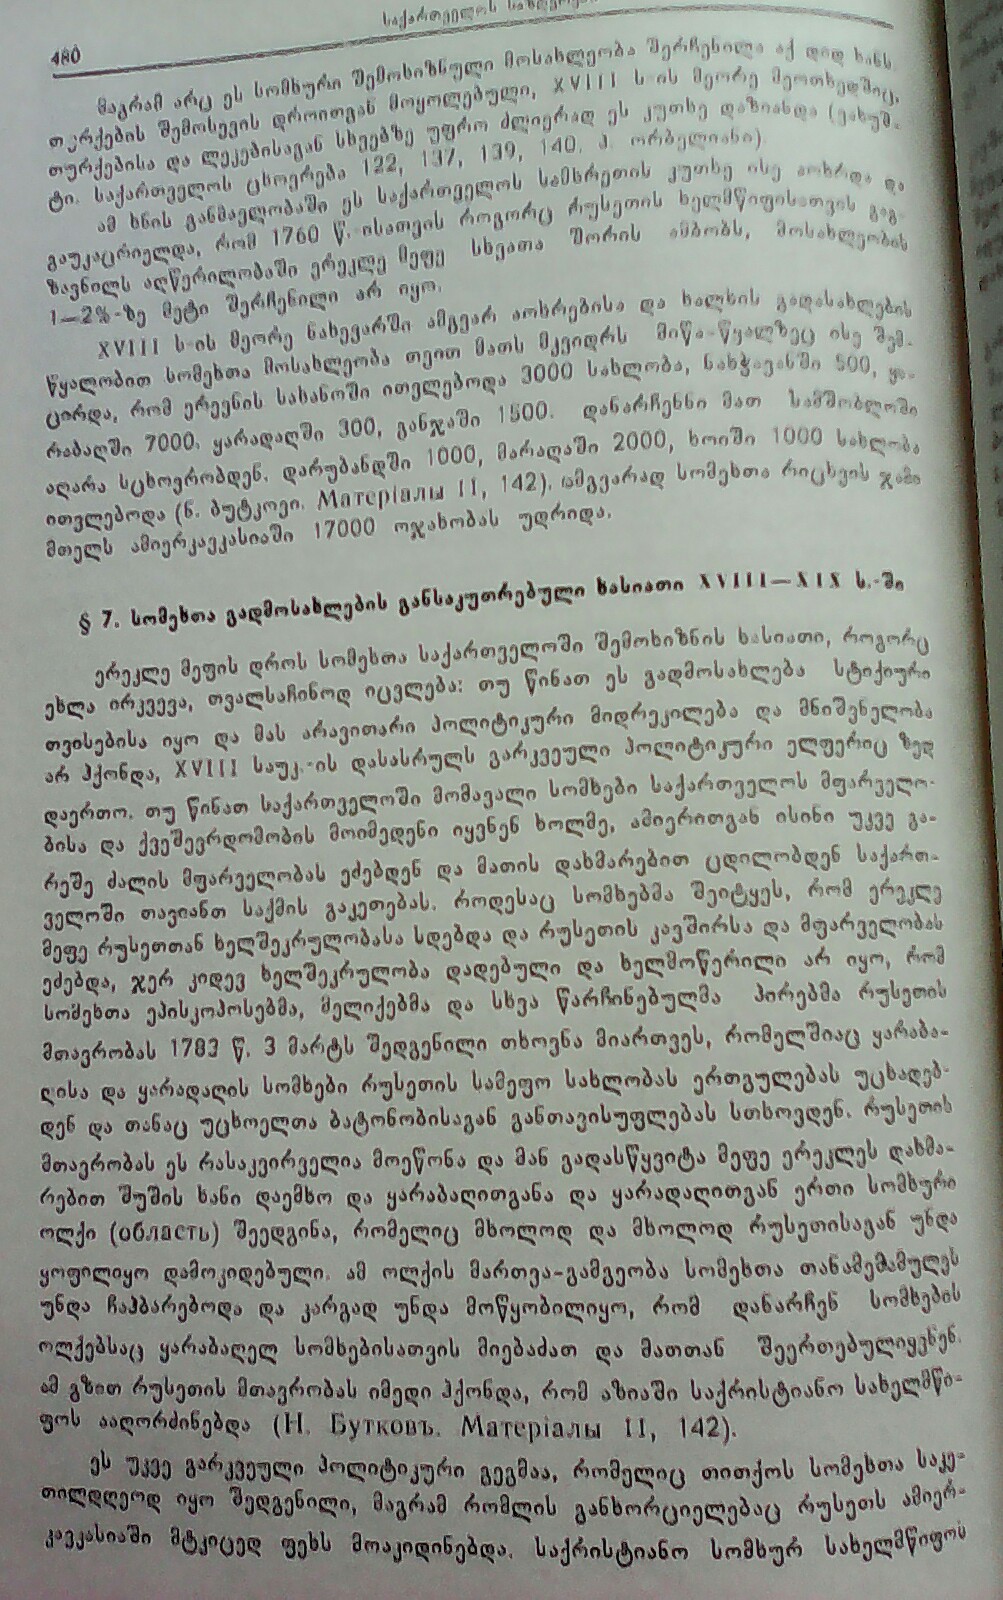 საქართველოს
480
მაგრამ არც ეს სომხური შემოხიზნული მოსახლეობა შერჩენილა აქ დიდ ხანს.
თურქების შემოსევის დროითგან მოყოლებული, XVIII ს-ის მეორე მეოთხედშიც,
თურქებისა და ლეკებისაგან სხვებზე უფრო ძლიერად ეს კუთხე დაზიანდა (ვახუშ-
ტი. საქართველოს ცხოვრება 122, 137, 139, 140. პ. ორბელიანი).
ამ ხნის განმავლობაში ეს საქართველოს სამხრეთის კუთხე ისე აოხრდა და
გაუკაცრიელდა, რომ 1760 წ. ისათვის როგორც რუსეთის ხელმწიფისათვის გაგ-
ზავნილს აღწერილობაში ერეკლე მეფე სხვათა შორის ამბობს, მოსახლეობის
1—2%-ზე მეტი შერჩენილი არ იყო.
XVIII ს-ის მეორე ნახევარში ამგვარ აოხრებისა და ხალხის გადასახლების
წყალობით სომეხთა მოსახლეობა თვით მათს მკვიდრს მიწა-წყალზეც ისე შემ-
ცირდა, რომ ერევნის სახანოში ითვლებოდა 3000 სახლობა, ნახჭავანში 500, ყა-
რაბაღში 7000, ყარადაღში 300, განჯაში 1500. დანარჩენნი მათ სამშობლოში
აღარა სცხოვრობდენ. დარუბანდში 1000, მარაღაში 2000, ხოიში 1000 სახლობა
ითვლებოდა (ნ. ბუტკოვი. Матеріалы II, 142). ამგვარად სომეხთა რიცხვის ჯამი
მთელს ამიერკავკასიაში 17000 ოჯახობას უდრიდა.
§ 7. სომეხთა გადმოსახლების განსაკუთრებული ხასიათი XVIII—XIX ს.-ში
ერეკლე მეფის დროს სომეხთა საქართველოში შემოხიზნის ხასიათი, როგორც
ეხლა ირკვევა, თვალსაჩინოდ იცვლება: თუ წინათ ეს გადმოსახლება სტიქიური
თვისებისა იყო და მას არავითარი პოლიტიკური მიდრეკილება და მნიშვნელობა
არ ჰქონდა, XVIII საუკ.-ის დასასრულს გარკვეული პოლიტიკური ელფერიც ზედ
დაერთო. თუ წინათ საქართველოში მომავალი სომხები საქართველოს მფარველო-
ბისა და ქვეშევრდომობის მოიმედენი იყვნენ ხოლმე, ამიერითგან ისინი უკვე გა-
რეშე ძალის მფარველობას ეძებდენ და მათის დახმარებით ცდილობდენ საქართ-
ველოში თავიანთ საქმის გაკეთებას. როდესაც სომხებმა შეიტყეს, რომ ერეკლე
მეფე რუსეთთან ხელშეკრულობასა სდებდა და რუსეთის კავშირსა და მფარველობას
ეძებდა, ჯერ კიდევ ხელშეკრულობა დადებული და ხელმოწერილი არ იყო, რომ
სომეხთა ეპისკოპოსებმა, მელიქებმა და სხვა წარჩინებულმა პირებმა რუსეთის
მთავრობას 1783 წ. 3 მარტს შედგენილი თხოვნა მიართვეს, რომელშიაც ყარაბა-
ღისა და ყარადაღის სომხები რუსეთის სამეფო სახლობას ერთგულებას უცხადებ-
დენ და თანაც უცხოელთა ბატონობისაგან განთავისუფლებას სთხოვდენ. რუსეთის
მთავრობას ეს რასაკვირველია მოეწონა და მან გადასწყვიტა მეფე ერეკლეს დახმა-
რებით შუშის ხანი დაემხო და ყარაბაღითგანა და ყარადაღითგან ერთი სომხური
ოლქი (область) შეედგინა, რომელიც მხოლოდ და მხოლოდ რუსეთისაგან უნდა
ყოფილიყო დამოკიდებული. ამ ოლქის მართვა-გამგეობა სომეხთა თანამემამულეს
უნდა ჩაჰბარებოდა და კარგად უნდა მოწყობილიყო, რომ დანარჩენ სომხების
ოლქებსაც ყარაბაღელ სომხებისათვის მიებაძათ და მათთან შეერთებულიყვნენ.
ამ გზით რუსეთის მთავრობას იმედი ჰქონდა, რომ აზიაში საქრისტიანო სახელმწი-
ფოს ააღორძინებდა (Н. Бутковъ. Матеріалы II, 142).
ეს უკვე გარკვეული პოლიტიკური გეგმაა, რომელიც თითქოს სომეხთა საკე-
თილდღეოდ იყო შედგენილი, მაგრამ რომლის განხორციელებაც რუსეთს ამიერ-
კავკასიაში მტკიცედ ფეხს მოაკიდინებდა. საქრისტიანო სომხურ სახელმწიფოს